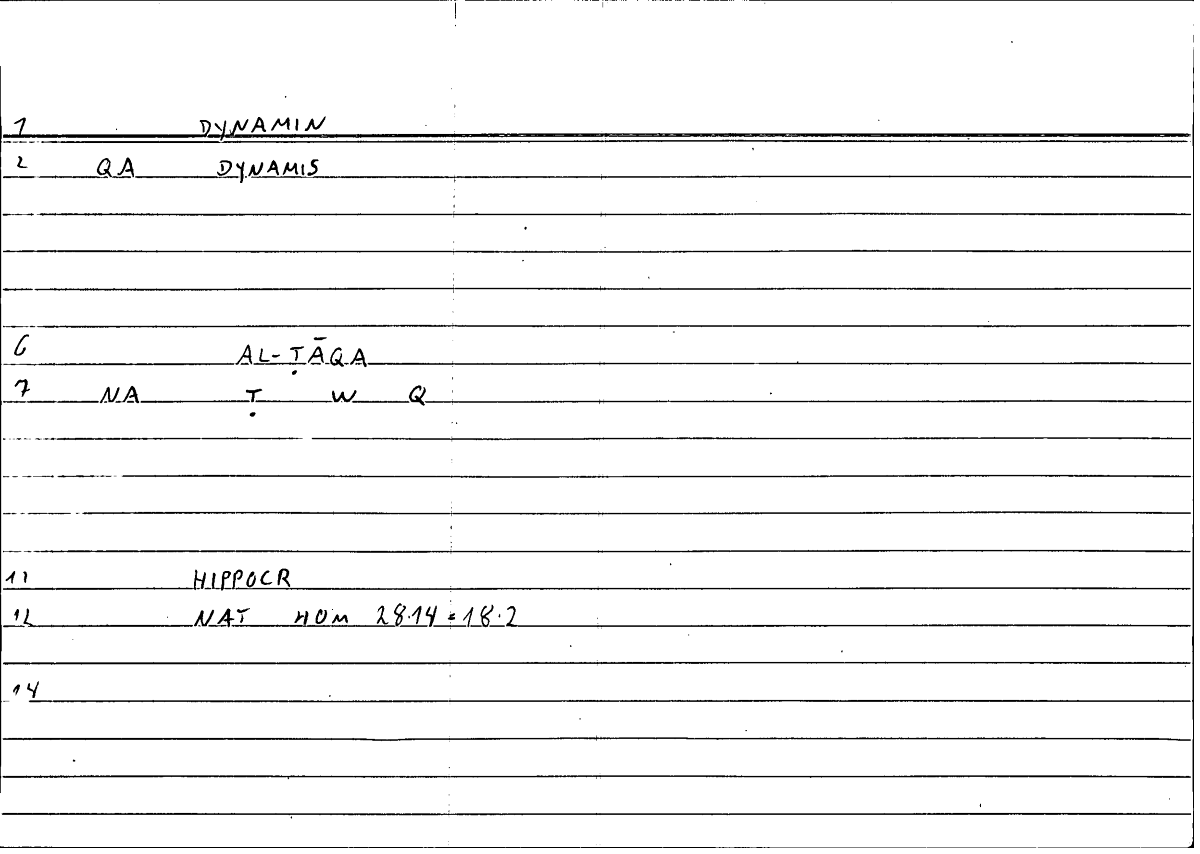 1 DYNAMIN
2 QA DYNAMIS
6 AL-ṬĀQA
7 NA Ṭ W Q
11 HIPPOCR
12 NAT HOM 28.14=18.2
14